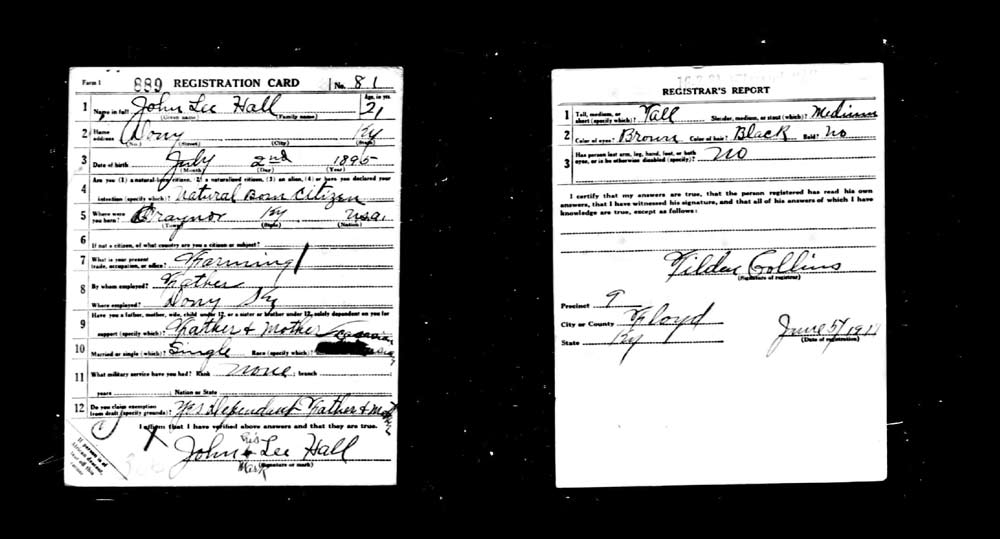 Form 1 889 REGISTRATION CARD No. 81
1 Name in full John Lee Hall Age, in yrs. 21
(Given name) (Family name)
2 Home address Dony Ky
(No.) (Street) (City) (State)
3 Date of birth July 2nd 1895
(Month) (Day) (Year)
4 Are you (1) a natural-born citizen, (2) a naturalized citizen, (3) an alien, (4) or have you declared your
intention (specify which)? Natural Born Citizen
5 Where were you born? Craynor Ky Usa.
(Town) (State) (Nation)
6 If not a citizen, of what country are you a citizen or subject?
7 What is your present trade, occupation, or office? Farming
8 By whom employed? Father
Where employed? Dony Ky
9 Have you a father, mother, wife, child under 12, or a sister or brother under 12, solely dependent on you for
support (specify which)? Father & Mother
10 Married or single (which)? Single Race (specify which)?
11 What military service have you had? Rank None ; branch
years ; Nation or State
12 Do you claim exemption from draft (specify grounds)? Yes Dependent Father & Mother
I affirm that I have verified above answers and that they are true.
X John Lee Hall
his
Mark
(Signature or mark)
If person is of African descent, tear off this corner
REGISTRAR'S REPORT
1 Tall, medium, or short (specify which)? Tall Slender, medium, or stout (which)? Medium
2 Color of eyes? Brown Color of hair? Black Bald? No
3 Has person lost arm, leg, hand, foot, or both eyes, or is he otherwise disabled (specify)? No
I certify that my answers are true, that the person registered has read his own
answers, that I have witnessed his signature, and that all of his answers of which I have
knowledge are true, except as follows:
Tilden Collins
(Signature of registrar)
Precinct 9
City or County Floyd
State Ky
June 5/191
(Date of registration)